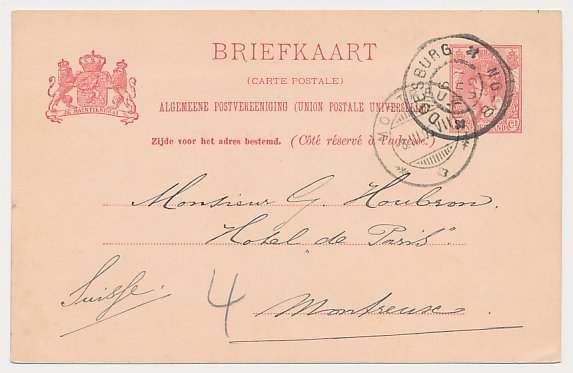 BRIEFKAART
(CARTE POSTALE)
ALGEMEENE POSTVEREENIGING (UNION POSTALE UNIVERSELLE)
Zijde voor het adres bestemd. (Côté réservé à l'adresse.)
JE MAINTIENDRAI
Monsieur G. Houbron.
Hotel "de Paris".
Suisse.
4
Montreux